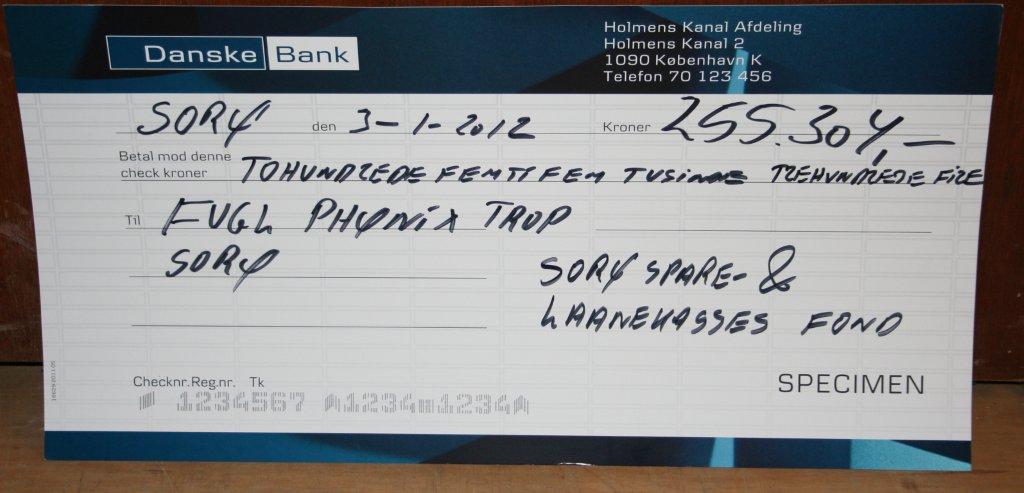 Danske Bank
Holmens Kanal Afdeling
Holmens Kanal 2
1090 København K
Telefon 70 123 456
SORØ den 3-1-2012 Kroner 255.304,-
Betal mod denne
check kroner TOHUNDREDE FEMTIFEM TUSINDE TREHUNDREDE FIRE
Til FUGL PHØNIX TROP
SORØ
SORØ SPARE- &
LAANEKASSES FOND
Checknr. Reg.nr. Tk
1234567 1234 1234
SPECIMEN